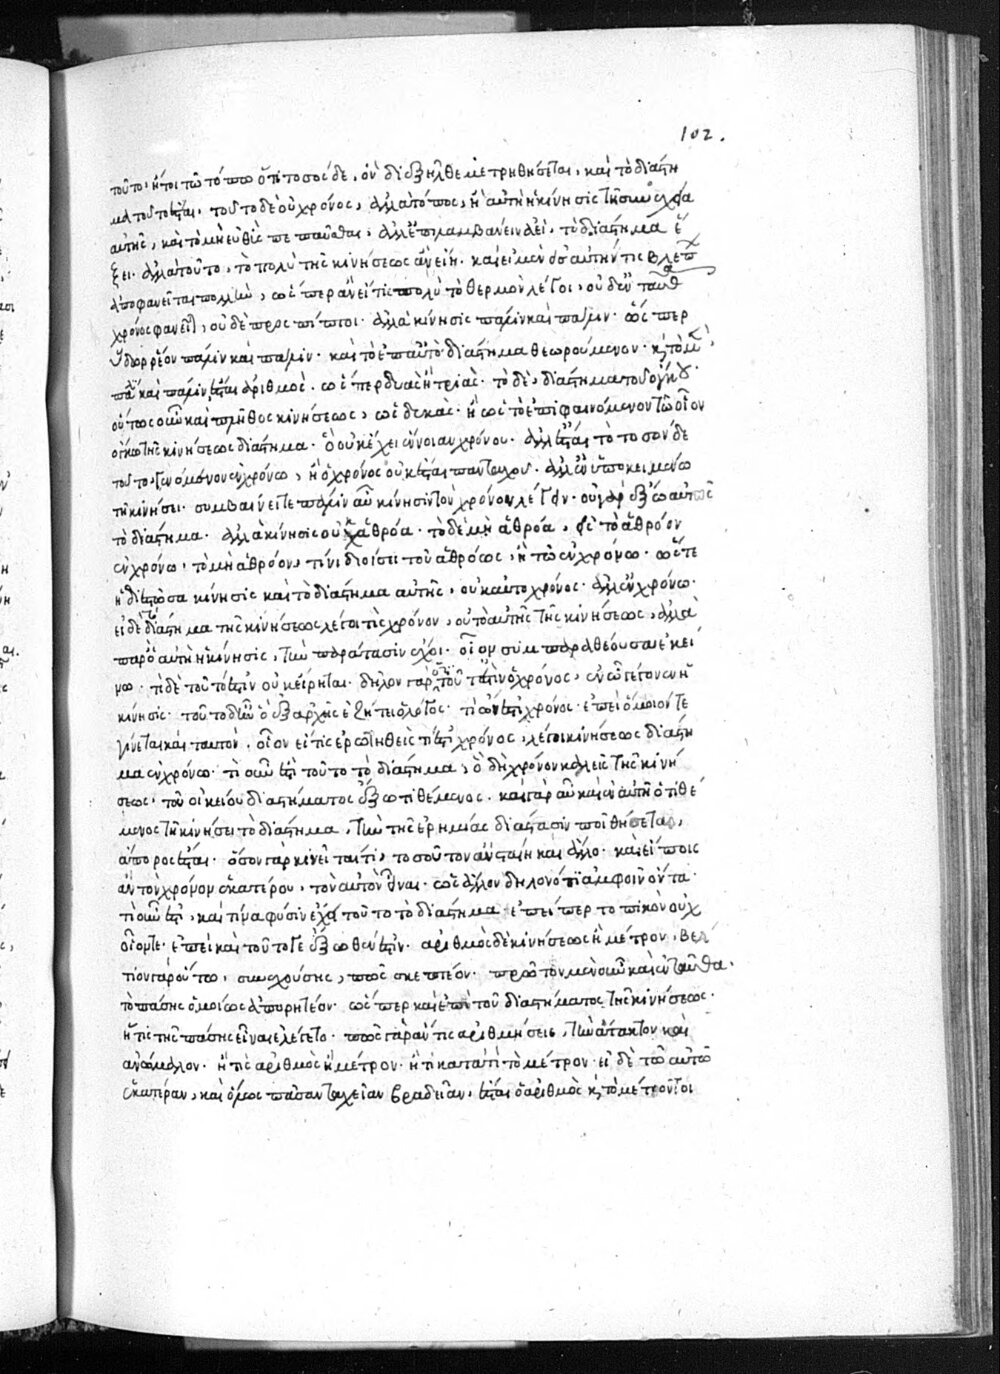 102.
τοῦτο· ἤτοι τῶ τόπω ὅτι τοσόσδε, ὃν διεξῆλθε μετρηθήσεται, καὶ τὸ διάστη
μα τοῦτο ἔσται. τοῦτο δὲ οὐ χρόνος, ἀλλὰ τόπος, ἢ αὐτὴ ἡ κίνησις τῆ συνεχεία
αὐτῆς, καὶ τὸ μὴ εὐθὺς πεπαῦσθαι, ἀλλ' ἐπιλαμβάνειν ἀεὶ, τὸ διάστημα ἕ
ξει. ἀλλὰ τοῦτο, τὸ πολὺ τῆς κινήσεως ἂν εἴη. καὶ εἰ μὲν εἰς αὐτήν τις βλέπ
ἀποφανεῖται πολλὴν, ὥσπερ ἂν εἴ τις πολὺ τὸ θερμὸν λέγοι, οὐδ' ἐνταῦθα
χρόνος φανεῖται, οὐδὲ προσπίπτοι. ἀλλὰ κίνησις πάλιν καὶ πάλιν. ὥσπερ
ὕδωρ ῥέον πάλιν καὶ πάλιν. καὶ τὸ ἐπ' αὐτὸ διάστημα θεωρούμενον. καὶ τὸ μὲν
πάλιν καὶ πάλιν, ἔσται ἀριθμὸς. ὥσπερ δυὰς ἢ τριάς. τὸ δὲ, διάστημα τοῦ ὄγκου.
οὕτως οὖν καὶ πλῆθος κινήσεως, ὡς δεκάς. ἢ ὡς τὸ ἐπιφαινόμενον τῶ οἷον
ὄγκω τῆς κινήσεως διάστημα. ὃ οὐκ ἔχει ἔννοιαν χρόνου. ἀλλ' ἔσται τὸ τοσόνδε
τοῦτο γενόμενον ἐν χρόνω, ἢ ὁ χρόνος οὐκ ἔσται πανταχοῦ. ἀλλ' ἐν ὑποκειμένω
τῆ κινήσει. συμβαίνει τε πάλιν αὖ κίνησιν τὸν χρόνον λέγειν. οὐ γὰρ ἔξω αὐτῆς
τὸ διάστημα. ἀλλὰ κίνησις οὐκ ἀθρόα. τὸ δὲ μὴ ἀθρόα, εἰ τὸ ἀθρόον
ἐν χρόνω, τὸ μὴ ἀθρόον, τίνι διοίσει τοῦ ἀθρόως, ἢ τῶ ἐν χρόνω. ὥστε
ἡ διεστῶσα κίνησις καὶ τὸ διάστημα αὐτῆς, οὐκ αὐτὸ χρόνος. ἀλλ' ἐν χρόνω.
εἰ δὲ τὸ διάστημα τῆς κινήσεως λέγοι τὶς χρόνον, οὐ τὸ αὐτῆς τῆς κινήσεως, ἀλλὰ
παρ' ὃ αὐτὴ ἡ κίνησις, τὴν παράτασιν ἔχοι. οἷον συμπαραθέουσα ἐκεί
νω. τί δὲ τοῦτο ἐστὶν οὐκ εἴρηται. δῆλον γὰρ ὅτι τοῦτ' ἐστὶν ὁ χρόνος, ἐν ὧ γέγονεν ἡ
κίνησις. τοῦτο δ' ἦν ὃ ἐξ ἀρχῆς ἐζήτει ὁ λόγος. τί ὢν ἐστὶ χρόνος. ἐπεὶ ὅμοιόν τε
γίνεται καὶ ταυτόν. οἷον εἴ τις ἐρωτηθεὶς τί ἐστι χρόνος, λέγοι κινήσεως διάστη
μα ἐν χρόνω. τί οὖν ἐστὶ τοῦτο τὸ διάστημα, ὃ δὴ χρόνον καλεῖς τῆς κινή
σεως, τοῦ οἰκείου διαστήματος ἔξω τιθέμενος. καὶ γὰρ αὖ καὶ ἐν αὐτῆ ὁ τιθέ
μενος τῆ κινήσει τὸ διάστημα, τὴν τῆς ἠρεμίας διάστασιν ποῖ θήσεται,
ἄπορος ἔσται. ὅσον γὰρ κινεῖται τί, τοσοῦτον ἂν σταίη καὶ ἄλλο. καὶ εἴποις
ἂν τὸν χρόνον ἑκατέρου, τὸν αὐτὸν εἶναι. ὡς ἄλλον δηλονότι ἀμφοῖν ὄντα.
τί οὖν ἐστὶ, καὶ τίνα φύσιν ἔχει τοῦτο τὸ διάστημα. ἐπείπερ τοπικὸν οὐχ
οἷόντε. ἐπεὶ καὶ τοῦτό γε ἔξωθέν ἐστιν. ἀριθμὸς δὲ κινήσεως ἢ μέτρον, βέλ
τιον γὰρ οὕτω, συνεχοῦς οὔσης, πῶς σκεπτέον. πρῶτον μὲν οὖν καὶ ἐνταῦθα.
τὸ πάσης ὁμοίως ἀπορητέον. ὥσπερ καὶ ἐπὶ τοῦ διαστήματος τῆς κινήσεως.
εἴ τις τῆς πάσης εἶναι ἐλέγετο. πῶς γὰρ ἄν τις ἀριθμήσειε, τὴν ἄτακτον καὶ
ἀνώμαλον. ἢ τίς ἀριθμὸς ἢ μέτρον. ἢ τί κατὰ τί τὸ μέτρον. εἰ δὲ τῶ αὐτῶ
ἑκατέραν, καὶ ὅλως πᾶσαν ταχεῖαν βραδεῖαν, ἔσται ὁ ἀριθμὸς καὶ τὸ μέτρον τοι